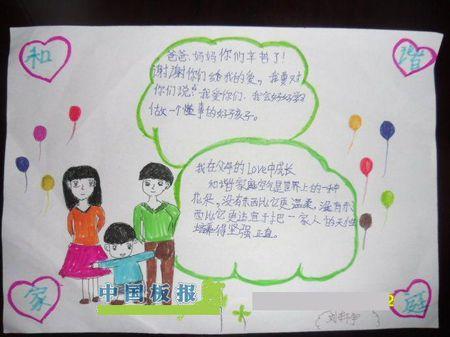 和
谐
爸爸、妈妈你们辛苦了!
谢谢你们给我的爱,我要对
你们说:"我爱你们,我会好好学习
做一个懂事的好孩子。
我在父母的love中成长
和谐家庭空气是世界上的一种
花朵,没有东西比它更温柔,没有东
西比它更适宜于把一家人的天性
培养得坚强、正直。
家
庭
中国板报